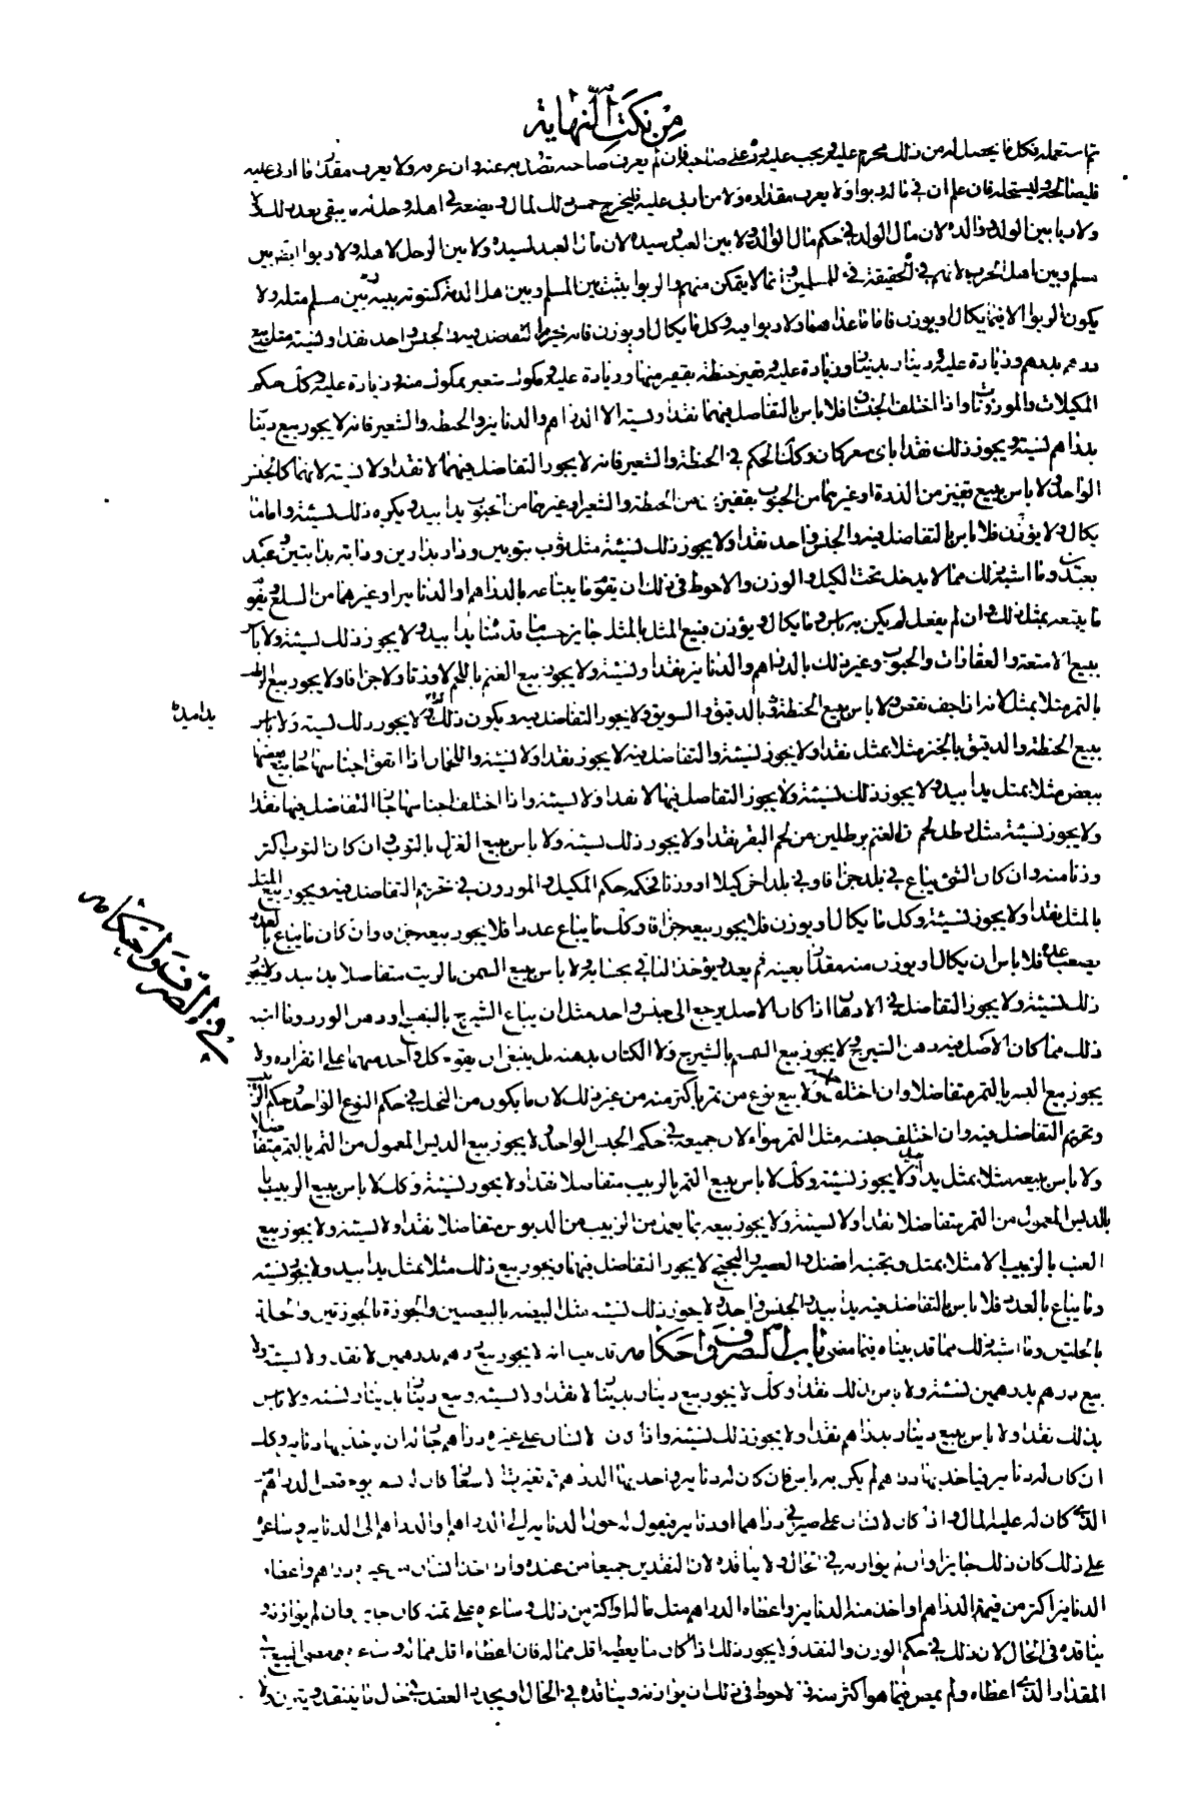 من نكت النهاية
ثم استعمله فكل ما يحصل له من ذلك محرم عليه ويجب عليه رده على صاحبه فان لم يعرف صاحبه تصدق به عنه وان عرفه ولا يعرف مقدار ما اربى عليه
فليصالحه وليستحله فان علم ان في ماله ربوا ولا يعرف مقداره ولا من اربى عليه فليخرج خمس ذلك المال ويضعه في اهله وحل له ما يبقى بعد ذلك
ولا ربا بين الولد والده لان مال الولد في حكم مال الوالد ولا بين العبد وسيده لان مال العبد لسيده ولا بين الرجل واهله ولا ربوا ايضا بين
مسلم وبين اهل الحرب لانهم في الحقيقة في للمسلمين وانما لا يتمكن منهم والربوا يثبت بين المسلم وبين اهل الذمة كثبوته بينه وبين مسلم مثله ولا
يكون الربوا الا فيما يكال او يوزن فاما ما عداهما فلا ربوا فيه وكل ما يكال او يوزن فانه يحرم التفاضل فيه والجنس واحد نقدا ونسيئة مثل بيع
درهم بدرهم وزيادة عليه ودينار بدينار وزيادة عليه وقفيز حنطة بقفيز منها وزيادة عليه ومكوك شعير بمكوك منه وزيادة عليه وكذلك حكم
المكيلات والموزونات واذا اختلف الجنسان فلا باس بالتفاضل فيهما نقدا ونسيئة الا الدراهم والدنانير والحنطة والشعير فانه لا يجوز بيع دينار
بدراهم نسيئة ويجوز ذلك نقدا باى سعر كان وكذلك الحكم في الحنطة والشعير فانه لا يجوز التفاضل فيهما لا نقدا ولا نسيئة لانهما كالجنس
الواحد ولا باس ببيع قفيز من الذرة او غيرها من الحبوب بقفيزين من الحنطة والشعير او غيرهما من الحبوب يدا بيد ويكره ذلك نسيئة واما ما لا
يكال ولا يوزن فلا باس بالتفاضل فيه والجنس واحد نقدا ولا يجوز ذلك نسيئة مثل ثوب بثوبين ودار بدارين ودابة بدابتين وعبد
بعبدين وما اشبه ذلك مما لا يدخل تحت الكيل والوزن والاحوط في ذلك ان يقوم ما يبتاعه بالدراهم او الدنانير او غيرهما من السلع ويقوم
ما يبيعه بمثل ذلك وان لم يفعل لم يكن به باس وما يكال ويوزن فبيع المثل بالمثل جايز حسب ما قدمناه يدا بيد ولا يجوز ذلك نسيئة ولا باس
ببيع الامتعة والعقارات والحبوب وغير ذلك بالدراهم والدنانير نقدا ونسيئة ولا يجوز بيع الغنم باللحم لا وزنا ولا جزافا ولا يجوز بيع الرطب
بالتمر مثلا بمثل لانه اذا جف نقص ولا باس ببيع الحنطة بالدقيق والسويق ولا يجوز التفاضل فيه ويكون ذلك نقدا ولا يجوز ذلك نسيئة ولا باس
يدا بيد
ببيع الحنطة والدقيق بالخبز مثلا بمثل نقدا ولا يجوز نسيئة والتفاضل فيه لا يجوز نقدا ولا نسيئة واللحمان اذا اتفق اجناسها جاز بيع بعضها
ببعض مثلا بمثل يدا بيد ولا يجوز ذلك نسيئة ولا يجوز التفاضل فيها لا نقدا ولا نسيئة واذا اختلف اجناسها جاز التفاضل فيها نقدا
ولا يجوز نسيئة مثل رطل لحم من الغنم برطلين من لحم البقر نقدا ولا يجوز ذلك نسيئة ولا باس ببيع الغزل بالثوب وان كان الثوب اكثر
وزنا منه وان كان الشئ يباع في بلد جزافا وفي بلد اخر كيلا او وزنا فحكمه حكم المكيل والموزون في تحريم التفاضل فيه ويجوز بيع المثل
بالمثل نقدا ولا يجوز نسيئة وكل ما يكال او يوزن فلا يجوز بيعه جزافا وكل ما يباع عددا فلا يجوز بيعه جزافا وان كان ما يباع بالعدد
يصعب عده فلا باس ان يكال او يوزن منه مقدار بعينه ثم يعد ويؤخذ الباقي بحسابه ولا باس ببيع السمن بالزيت متفاضلا يدا بيد ولا يجوز
ذلك نسيئة ولا يجوز التفاضل في الادهان اذا كان الاصل يرجع الى جنس واحد مثل ان يباع الشيرج بالبنفسج او دهن الورد وما اشبه
في الصرف واحكامه
ذلك مما كان الاصل فيه دهن الشيرج ولا يجوز بيع السمسم بالشيرج ولا الكتان بدهنه بل ينبغى ان يقوم كل واحد منهما على انفراده ولا
يجوز بيع البسر بالتمر متفاضلا وان اختلف جنسه ولا بيع نوع من تمر باكثر منه من غير ذلك لان ما يكون من النخل في حكم النوع الواحد وحكم الزبيب
وتحريم التفاضل فيه وان اختلف جنسه مثل التمر سواء لان جميعه في حكم الجنس الواحد ولا يجوز بيع الدبس المعمول من التمر بالتمر متفاضلا
ولا باس ببيعه مثلا بمثل يدا بيد ولا يجوز نسيئة وكذلك لا باس ببيع التمر بالزبيب متفاضلا نقدا ولا يجوز نسيئة وكذلك لا باس ببيع الزبيب
بالدبس المعمول من التمر متفاضلا نقدا ولا نسيئة ولا يجوز بيعه بما يعمل من الزبيب من الدبوس متفاضلا نقدا ولا نسيئة ولا يجوز بيع
العنب بالزبيب الا مثلا بمثل وتجنبه افضل والعصير والبختج لا يجوز التفاضل فيهما ويجوز بيع ذلك مثلا بمثل يدا بيد ولا يجوز نسيئة
وما يباع بالعدد فلا باس بالتفاضل فيه يدا بيد والجنس واحد ولا يجوز ذلك نسيئة مثل البيضة بالبيضتين والجوزة بالجوزتين والحلة
بالحلتين وما اشبه ذلك مما قد بيناه فيما مضى باب الصرف واحكامه قد بينا انه لا يجوز بيع درهم بدرهمين لا نقدا ولا نسيئة ولا
بيع درهم بدرهمين نسيئة ولا باس بذلك نقدا وكذلك لا يجوز بيع دينار بدينارين لا نقدا ولا نسيئة وبيع دينار بدينار ونسيئة ولا باس
بذلك نقدا ولا باس ببيع دينار بدراهم نقدا ولا يجوز ذلك نسيئة واذا كان لانسان على غيره دراهم جاز له ان ياخذ بها دنانير وكذلك
ان كان له دنانير فياخذ بها دراهم لم يكن به باس فان كان له دنانير واخذ بها الدراهم ثم تغيرت الاسعار كان له سعر يوم قبض الدراهم
الذي كان له عليه المال واذا كان لانسان على صيرفي دراهم او دنانير فيقول له حول الدنانير الى الدراهم والدراهم الى الدنانير وساعره
على ذلك كان ذلك جايزا وان لم يوازنه في الحال ولا يناقده لان النقدين جميعا من عنده واذا اخذ انسان من غيره دراهم واعطاه
الدنانير اكثر من قيمة الدراهم او اخذ منه الدنانير واعطاه الدراهم مثل ماله او اكثر من ذلك وساعره على ثمنه كان جايزا وان لم يوازنه و
يناقده في الحال لان ذلك في حكم الوزن والنقد ولا يجوز ذلك اذا كان ما يعطيه اقل مما له فان اعطاه اقل مما له وساعره مضى البيع في
المقدار الذي اعطاه ولم يمض فيما هو اكثر منه والاحوط في ذلك ان يوازنه ويناقده في الحال او يجدد العقد في حال ما ينتقد ويتزن ولا